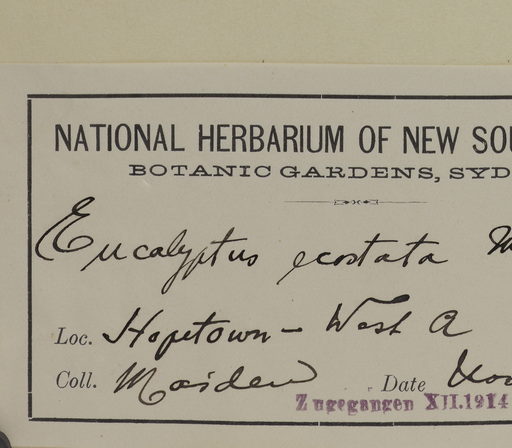 NATIONAL HERBARIUM OF NEW SOU
BOTANIC GARDENS, SYD
Eucalyptus ecostata M
Loc. Hopetown - West A
Coll. Maiden Date Nov
Zugegangen XII.1914